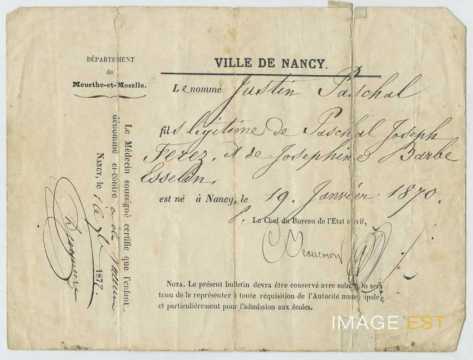 DÉPARTEMENT
de
Meurthe-et-Moselle.
VILLE DE NANCY.
Le nommé Justin Paschal
fils légitime de Paschal Joseph
Ferez, et de Josephine Barbe
Esselin,
est né à Nancy, le 19 Janvier 1870.
Le Chef du Bureau de l'État civil,
NOTA. Le présent bulletin devra être conservé avec soin
tenu de le représenter à toute réquisition de l'Autorité municipale
et particulièrement pour l'admission aux écoles.
Le Médecin soussigné certifie que l'enfant
dénommé ci-contre a été vacciné
Nancy, le 187
IMAGE EST